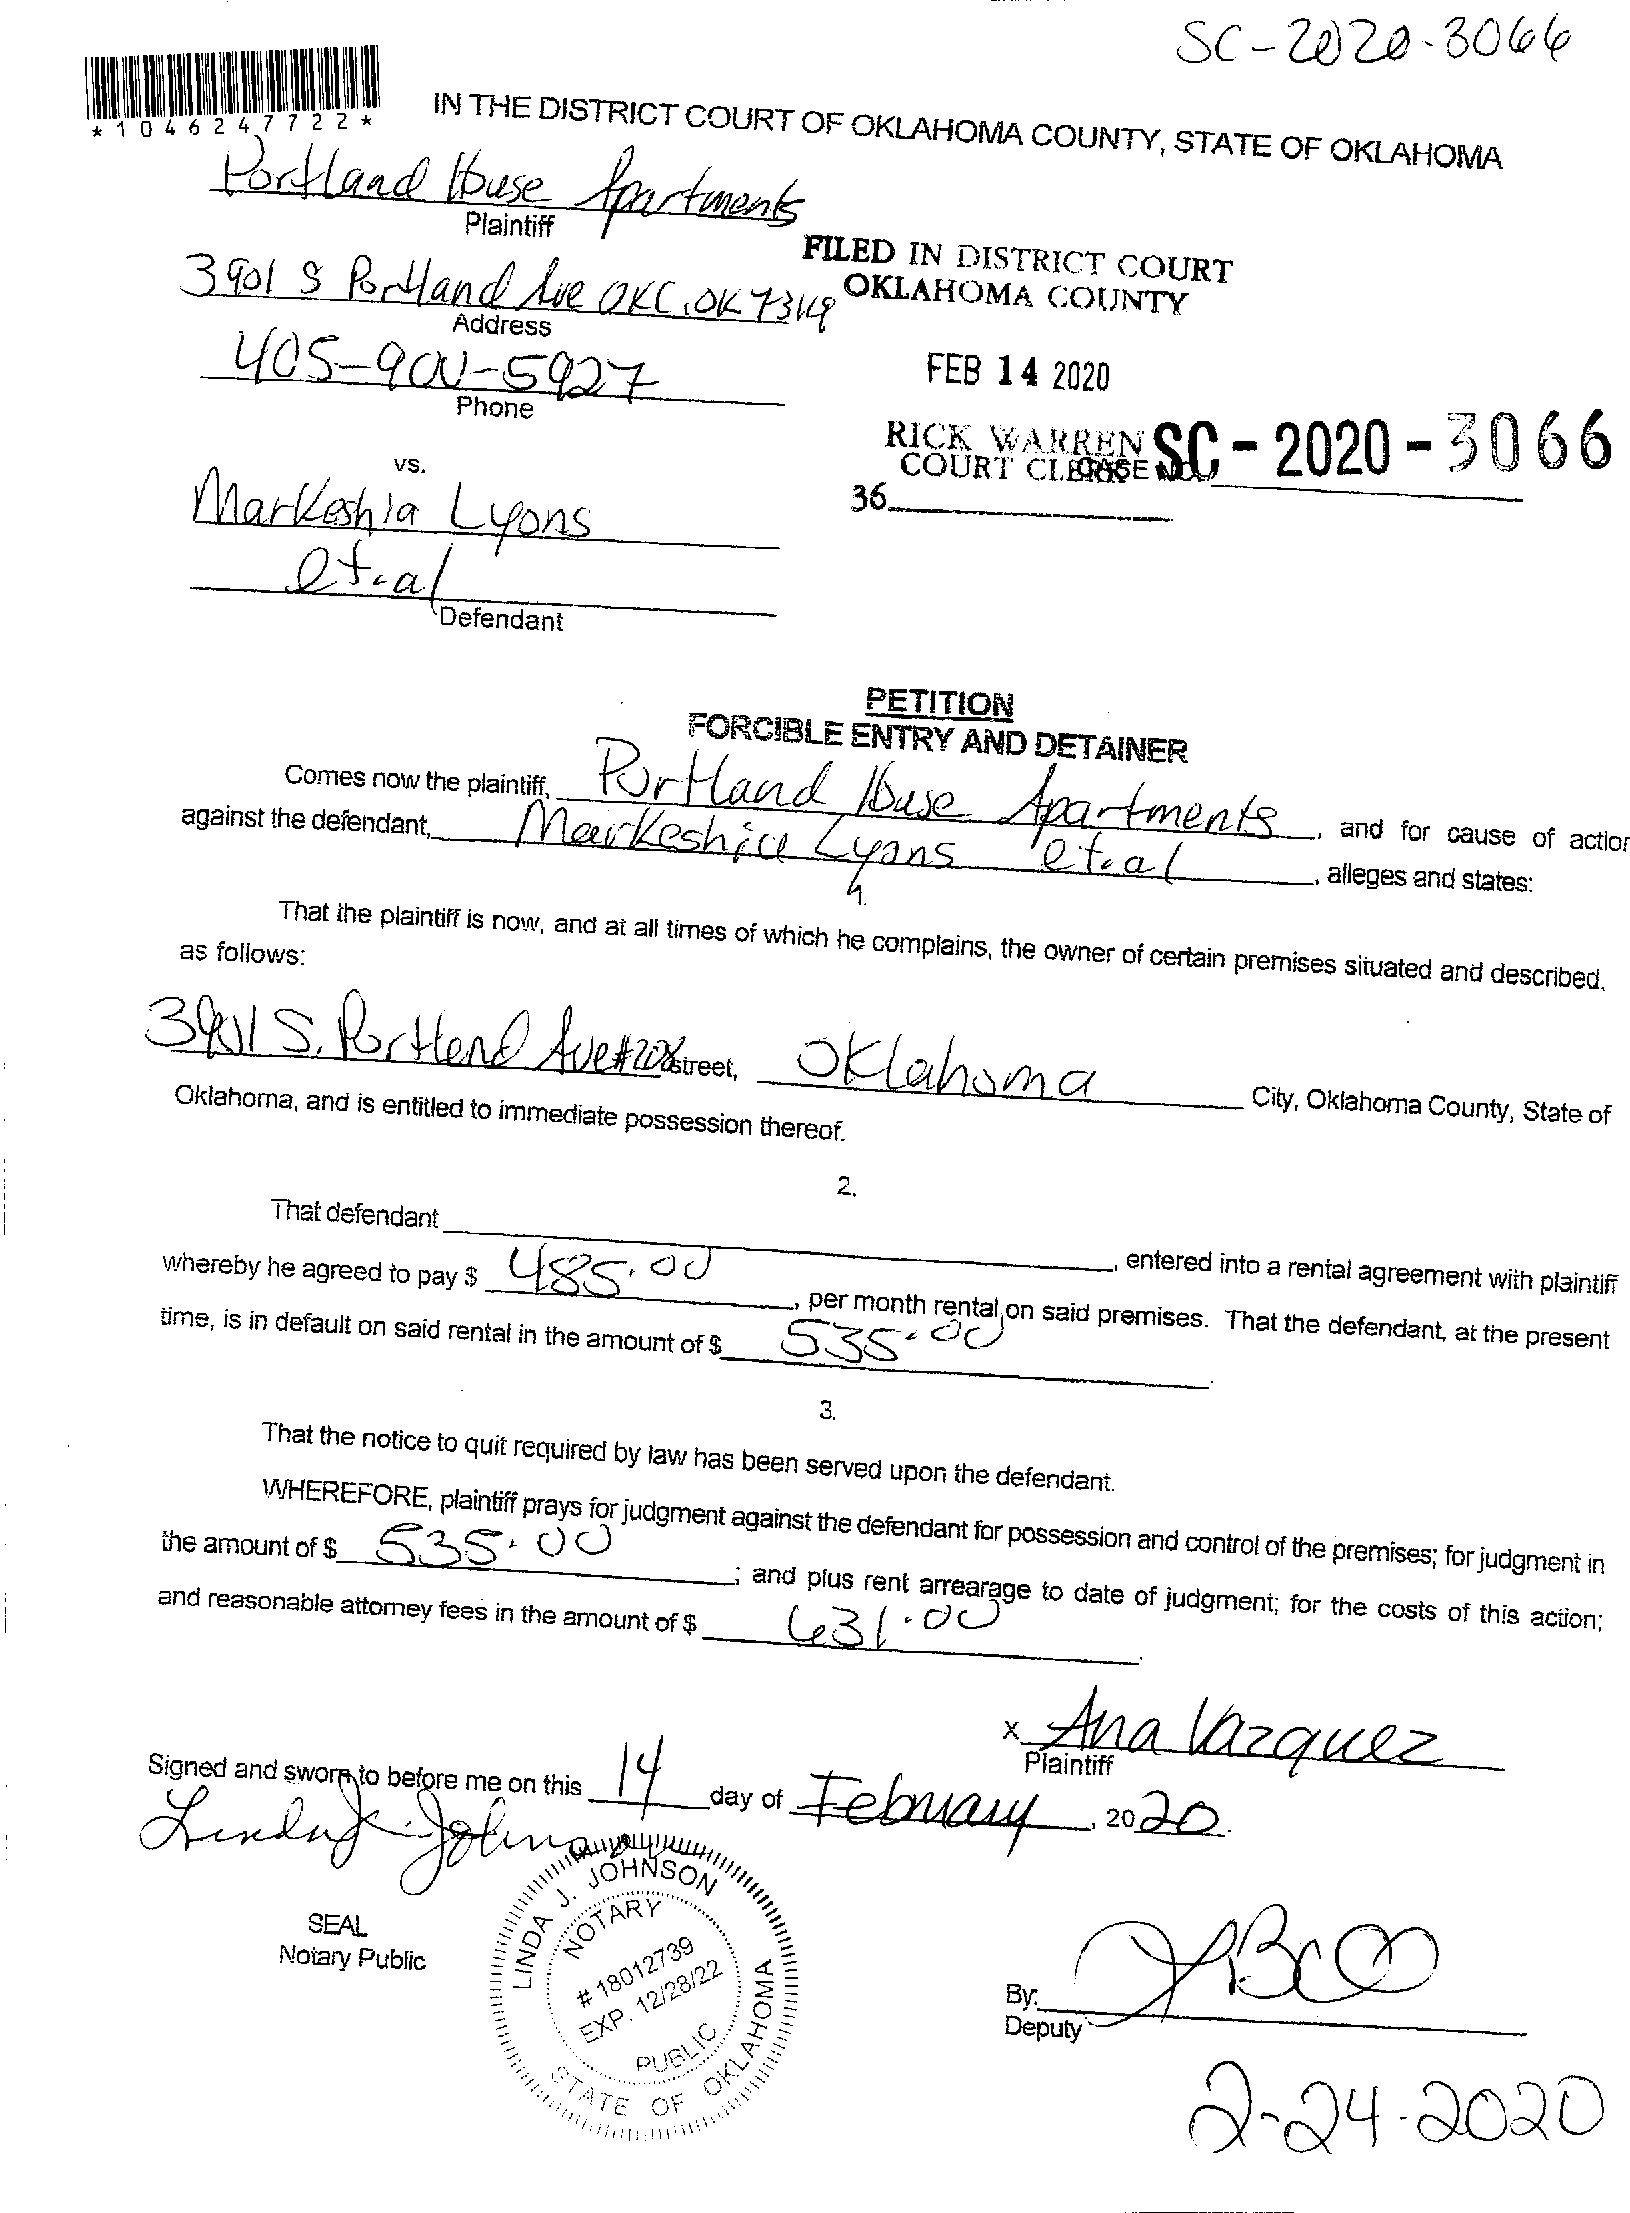 SC-2020-3066
*1046247722*
IN THE DISTRICT COURT OF OKLAHOMA COUNTY, STATE OF OKLAHOMA
Portland House Apartments
Plaintiff
FILED IN DISTRICT COURT
OKLAHOMA COUNTY
3901 S Portland Ave OKC, OK 73119
Address
405-901-5927
Phone
FEB 14 2020
RICK WARREN
COURT CLERK
CASE NO. SC-2020-3066
36
vs.
Markeshia Lyons
et.al
Defendant
PETITION
FORCIBLE ENTRY AND DETAINER
Comes now the plaintiff, Portland House Apartments, and for cause of action
against the defendant, Markeshia Lyons et.al, alleges and states:
1.
That the plaintiff is now, and at all times of which he complains, the owner of certain premises situated and described,
as follows:
3901 S. Portland Ave #208 street, Oklahoma City, Oklahoma County, State of
Oklahoma, and is entitled to immediate possession thereof.
2.
That defendant , entered into a rental agreement with plaintiff
whereby he agreed to pay $ 485.00, per month rental on said premises. That the defendant, at the present
time, is in default on said rental in the amount of $ 535.00
3.
That the notice to quit required by law has been served upon the defendant.
WHEREFORE, plaintiff prays for judgment against the defendant for possession and control of the premises; for judgment in
the amount of $ 535.00; and plus rent arrearage to date of judgment; for the costs of this action;
and reasonable attorney fees in the amount of $ 631.00
x Ana Vazquez
Plaintiff
Signed and sworn to before me on this 14 day of February, 2020.
Linda J. Johnson
LINDA J. JOHNSON
NOTARY
# 18012739
EXP. 12/28/22
PUBLIC
STATE OF OKLAHOMA
SEAL
Notary Public
By:
Deputy
2-24-2020